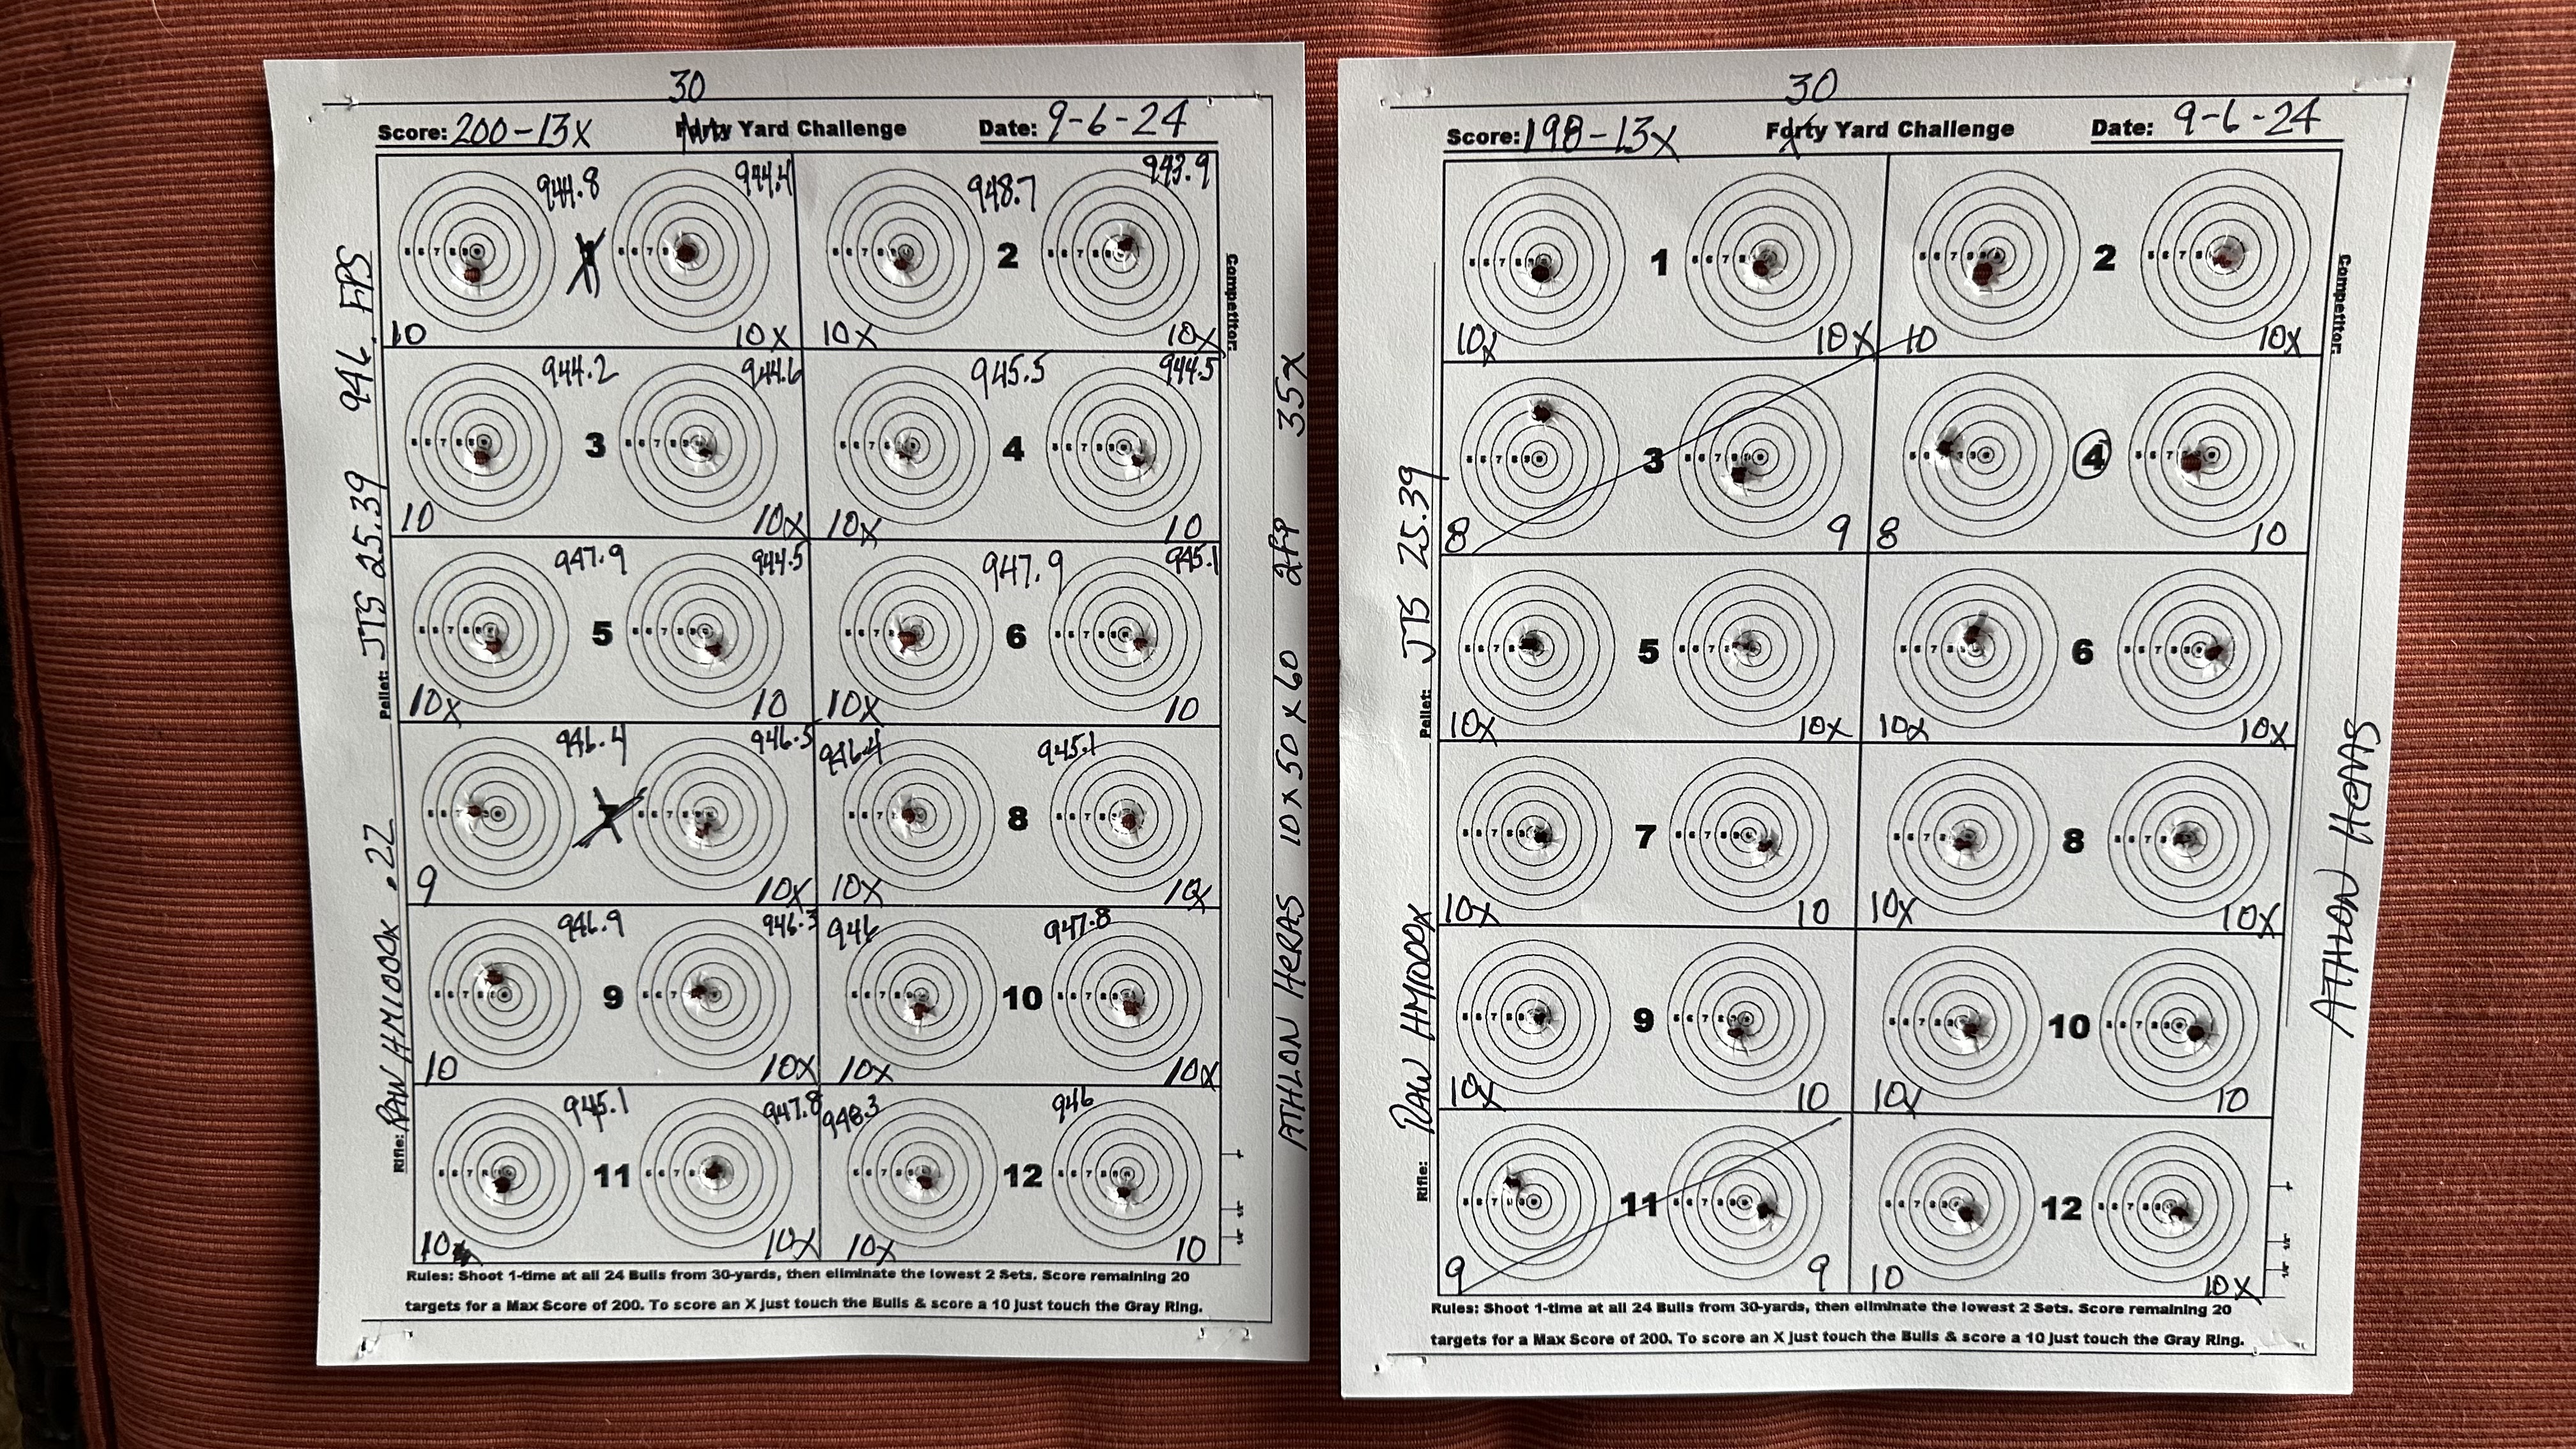 30
Score: 200-13X Forty Yard Challenge Date: 9-6-24
944.8 944.4 948.7 943.9
1 2
10 10X 10X 10X
944.2 944.6 945.5 944.5
3 4
10 10X 10X 10
947.9 944.5 947.9 945.1
5 6
10X 10 10X 10
946.4 946.5 946.4 945.1
7 8
9 10X 10X 10X
946.9 946.3 946 947.8
9 10
10 10X 10X 10X
945.1 947.8 948.3 946
11 12
10 10X 10X 10
Rules: Shoot 1-time at all 24 Bulls from 30-yards, then eliminate the lowest 2 Sets. Score remaining 20
targets for a Max Score of 200. To score an X just touch the Bulls & score a 10 just touch the Gray Ring.
Rifle: RAW HM1000X .22 Pellet: JTS 25.39 946 FPS
Competitor:
ATHLON HERAS 10x50x60 2FP 35X
30
Score: 198-13X Forty Yard Challenge Date: 9-6-24
1 2
10X 10X 10 10X
3 4
8 9 8 10
5 6
10X 10X 10X 10X
7 8
10X 10 10X 10X
9 10
10X 10 10X 10
11 12
9 9 10 10X
Rules: Shoot 1-time at all 24 Bulls from 30-yards, then eliminate the lowest 2 Sets. Score remaining 20
targets for a Max Score of 200. To score an X just touch the Bulls & score a 10 just touch the Gray Ring.
Rifle: RAW HM1000X Pellet: JTS 25.39
Competitor:
ATHLON HERAS